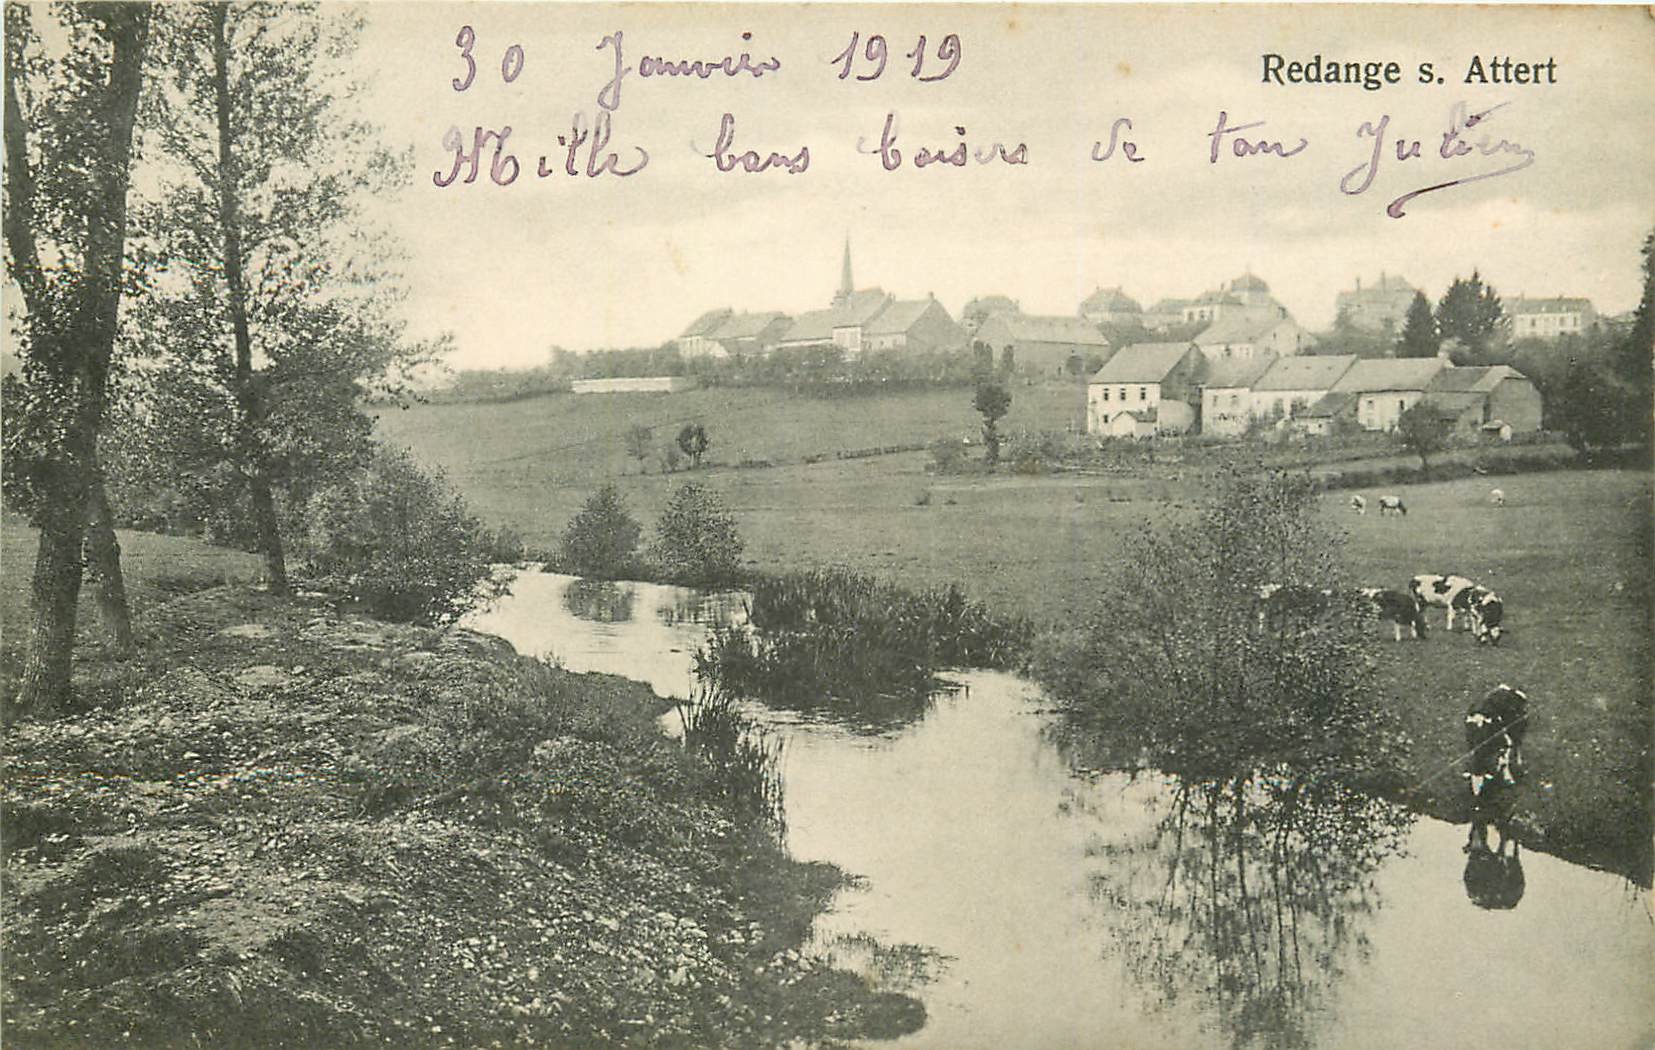 30 Janvier 1919
Redange s. Attert
Mille bons baisers de ton Julien